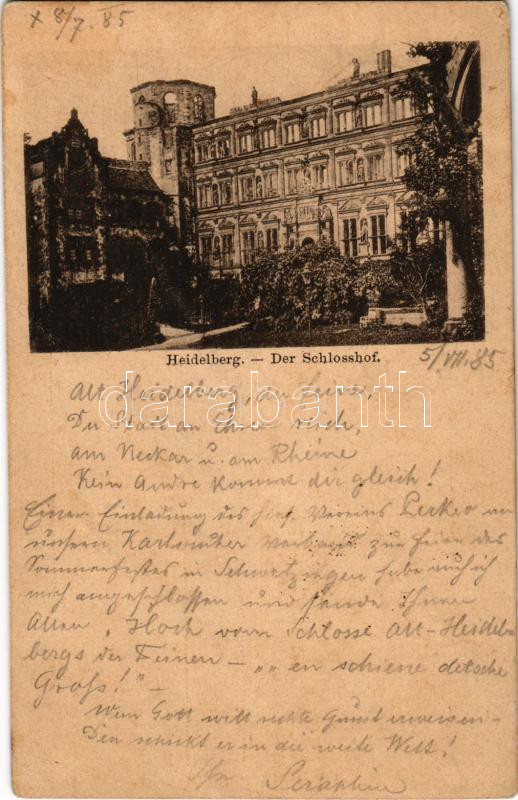 x 8/7. 85
Heidelberg. — Der Schlosshof.
5/VII. 85
Alt Heidelberg, du feine,
Du Stadt an Ehren reich,
am Neckar u. am Rheine
Kein Andre kommt dir gleich!
Einer Einladung des hies. Vereins Perkeo an
unsern Karlsruher Verband zur Feier des
Sommerfestes in Schwetzingen habe auch ich
mich angeschlossen und sende Ihnen
Allen „Hoch vom Schlosse Alt-Heidel-
bergs der Feinen – „„ en schiene detsche
Gruß!" –
Wem Gott will rechte Gunst erweisen –
Den schickt er in die weite Welt!
Ihr
Seraphin
darabanth